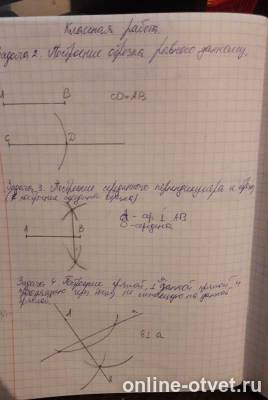 Классная работа
Задача 2. Построение отрезка равного данному.
A B CD=AB
C D
Задача 3. Построение серединного перпендикуляра к
(и построение середины отрезка)
A B - ⊥ AB
- середина
Задача 4 Построение прямой, ⊥ данной прямой, и
проходящую через не лежащую на данной
прямой.
A a
⊥ a
online-otvet.ru